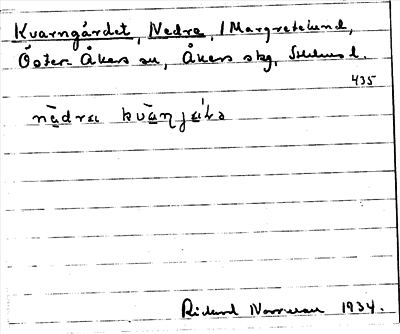 Kvarngärdet, Nedre, /Margretelund,
Öster-Åkers sn, Åkers skg, Sthlms l.
435
nädra kvàṇjæ̨ḷə
Rickard Norrman 1934.